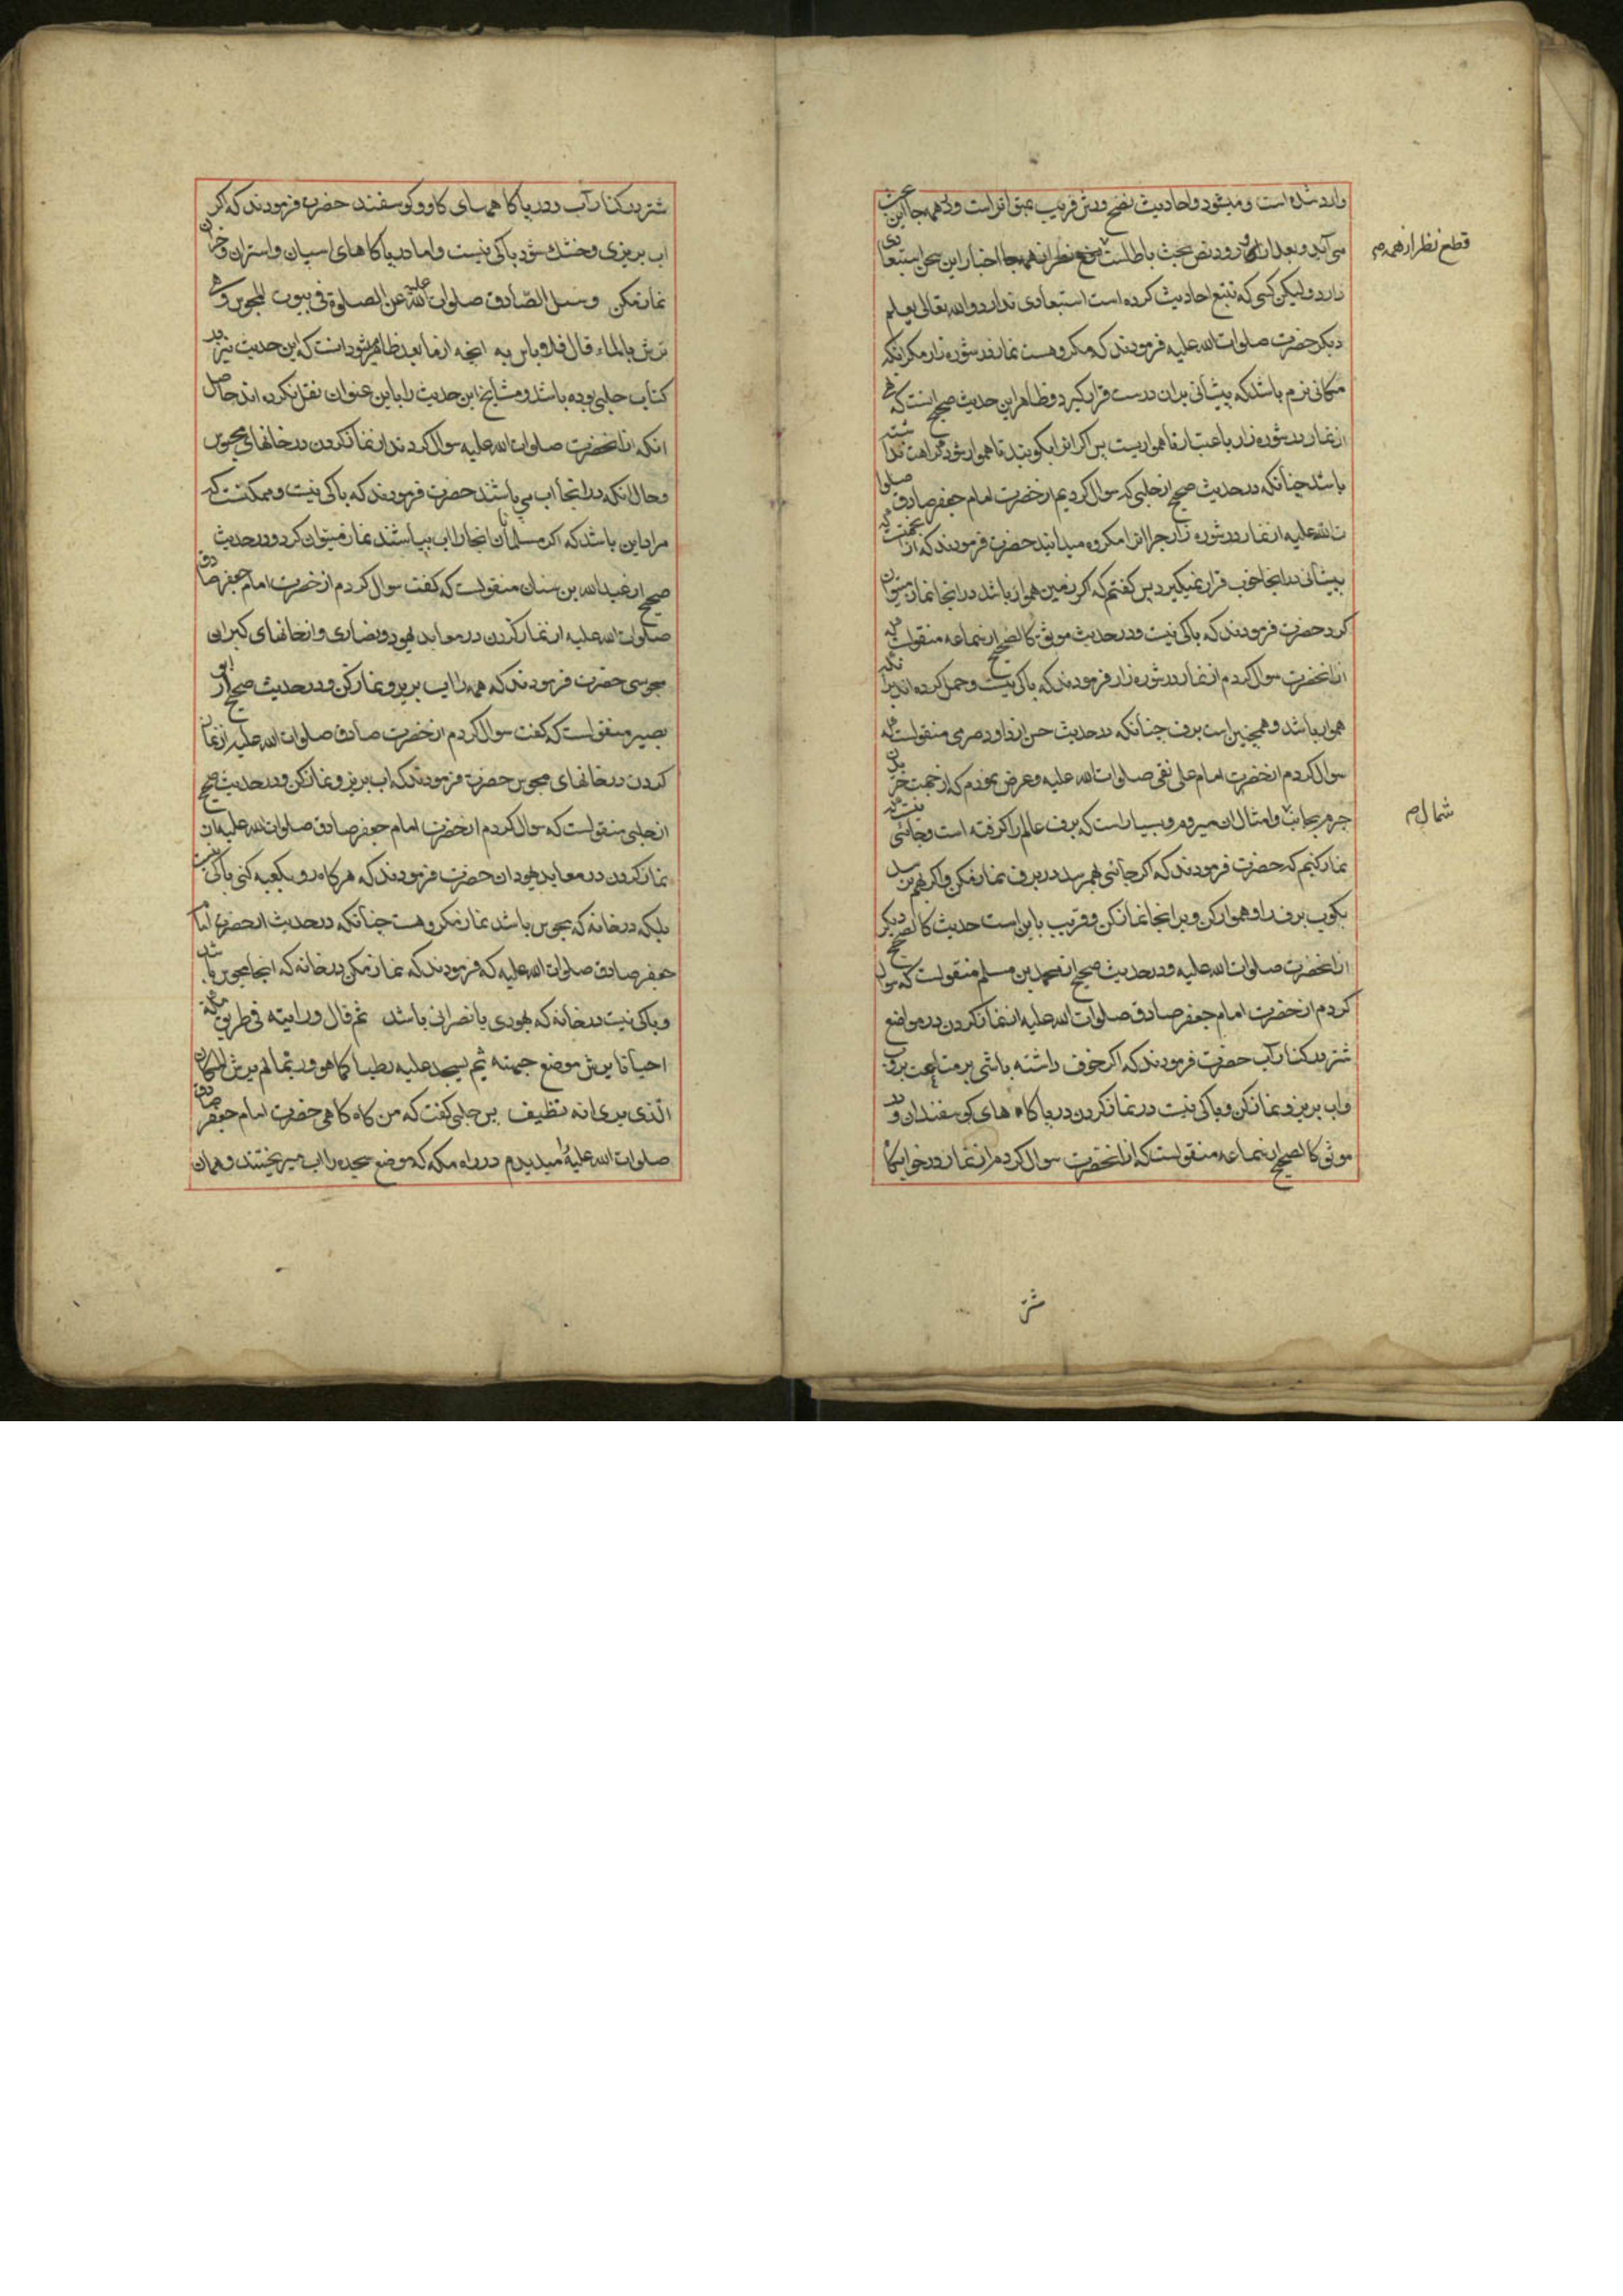 وارد شده است و میشود و احادیث نضح و رش قریب بتواتر است و در همه جا این بحث
می آید و بعد از ورود نص بحث باطلست همه جا اخبار این سخن استبعادی
ندارد و لیکن کسی که تتبع احادیث کرده است استبعادی ندارد والله تعالی یعلم
دیگر حضرت صلوات الله علیه فرمودند که مکروهست نماز در شوره زار مگر آنکه
مکانی نرم باشد که پیشانی بران درست قرار گیرد و ظاهر این حدیث صحیح انست که نهی
از نماز در شوره زار باعتبار ناهمواریست پس اگر انرا بکوبند تا هموار شود کراهت نداشته
باشد چنانکه در حدیث صحیح از حلبی که سوال کردیم از حضرت امام جعفر صادق صلوا
ت الله علیه از نماز در شوره زار چرا انرا مکروه میدانید حضرت فرمودند که از انجهت که
پیشانی در انجا خوب قرار نمیگیرد پس گفتم که اگر زمین هموار باشد در انجا نماز میتوان
کرد حضرت فرمودند که باکی نیست و در حدیث موثق کالصحیح از سماعه منقولست که
از انحضرت سوال کردم از نماز در شوره زار فرمودند که باکی نیست و حمل کرده اند برانکه
هموار باشد و همچنین است برف چنانکه در حدیث حسن از داود صرمی منقولست که
سوال کردم از حضرت امام علی نقی صلوات الله علیه و عرض نمودم که از جهت
بجانب و امثال ان میرویم و بسیار است که برف عالم را گرفته است و جائی نیست که
نماز کنیم که حضرت فرمودند که اگر جائی بهم رسد در برف نماز مکن و اگر بهم نرسد
بکوب برف را و هموار کن و بر انجا نماز کن و قریب باین است حدیث کالصحیح دیگر
از انحضرت صلوات الله علیه و در حدیث صحیح از محمد بن مسلم منقولست که سوال
کردم از حضرت امام جعفر صادق صلوات الله علیه از نماز کردن در مواضع
شتر در کنار آب حضرت فرمودند که اگر خوف داشته باشی بر متاعت بروب
و اب بریز و نماز کن و باکی نیست در نماز کردن در پاگاه های گوسفندان و در
موثق کالصحیح از سماعه منقولست که از انحضرت سوال کردم از نماز در خوابگاه
قطع نظر از همه
شمال
شتر
شتر در کنار آب و در پاگاههای گاو و گوسفند حضرت فرمودند که اگر
اب بریزی و خشک شود باکی نیست و اما در پاگاهای اسپان و استران و خران
نماز مکن و سئل الصادق صلوات الله علیه عن الصلوة فی بیوت المجوس و هی
ترش بالماء قال فلا باس به انچه از ما بعد ظاهر میشود انست که این حدیث نیز در
کتاب حلبی بوده باشد و مشایخ این حدیث را باین عنوان نقل نکرده اند حاصل
انکه از انحضرت صلوات الله علیه سوال کردند از نماز کردن در خانهای مجوس
و حال انکه در انجا اب می پاشند حضرت فرمودند که باکی نیست و ممکنست که
مراد این باشد که اگر مسلمانان انجا را اب بپاشند نماز میتوان کرد و در حدیث
صحیح از عبدالله بن سنان منقولست که گفت سوال کردم از حضرت امام جعفر صادق
صلوات الله علیه از نماز کردن در معابد یهود و نصاری و از خانهای گبران
مجوسی حضرت فرمودند که همه را اب بریز و نماز کن و در حدیث صحیح از ابو
بصیر منقولست که گفت سوال کردم از حضرت صادق صلوات الله علیه از نماز
کردن در خانهای مجوس حضرت فرمودند که اب بریز و نماز کن و در حدیث صحیح
از حلبی منقولست که سوال کردم از حضرت امام جعفر صادق صلوات الله علیه از
نماز کردن در معابد یهودان حضرت فرمودند که هر گاه رو بکعبه کنی باکی نیست
بلکه در خانه که مجوس باشد نماز مکروهست چنانکه در حدیث از حضرت امام
جعفر صادق صلوات الله علیه که فرمودند که نماز مکن در خانه که انجا مجوس باشد
و باکی نیست در خانه که یهودی یا نصرانی باشد ثم قال ورایته فی طریق مکة
احیانا یرش موضع جبهته ثم یسجد علیه رطبا کما هو وربما لم یرش المکان
الذی یری انه نظیف پس حلبی گفت که من گاه گاهی حضرت امام جعفر صادق
صلوات الله علیه را میدیدم در راه مکه که موضع سجده را اب میریختند و همان